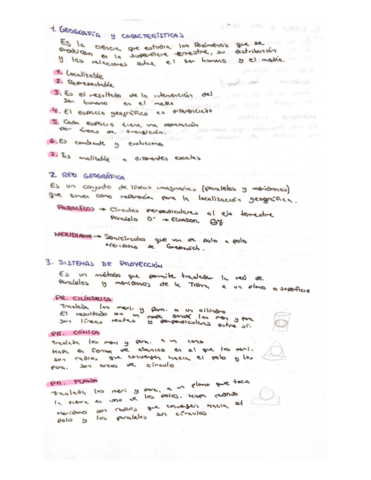 1. GEOGRAFÍA y CARACTERÍSTICAS
Es la ciencia que estudia los fenómenos que se
producen en la superficie terrestre, su distribución
y las relaciones entre el ser humano y el medio.
1. Localizable
2. Representable
3. Es el resultado de la intervención del
ser humano en el medio
4. El espacio geográfico es diferenciado
5. Cada espacio tiene una separación
por áreas de transición.
6. Es cambiante y evoluciona
7. Es analizable a diferentes escalas
2. RED GEOGRÁFICA
Es un conjunto de líneas imaginarias (paralelos y meridianos)
que sirven como referencia para la localización geográfica.
PARALELOS → Círculos perpendiculares al eje terrestre
Paralelo 0° → Ecuador
MERIDIANO → Semicírculos que van de polo a polo
Meridiano de Greenwich.
3. SISTEMAS DE PROYECCIÓN
Es un método que permite trasladar la red de
paralelos y meridianos de la Tierra a un plano o superficie
PR. CILÍNDRICA
Traslada los meri. y para. a un cilindro
El resultado es un mapa donde los mer y para
son líneas rectas y perpendiculares entre sí.
PR. CÓNICA
Traslada los mer y para. a un cono
Mapa en forma de abanico en el que los meri.
son radios que convergen hacia el polo y los
para. son arcos de círculo
PR. PLANA
Traslada los meri y para. a un plano que toca
la tierra en uno de los polos. Mapa redondo
Meridiano son radios que convergen hacia el
polo y los paralelos son círculos